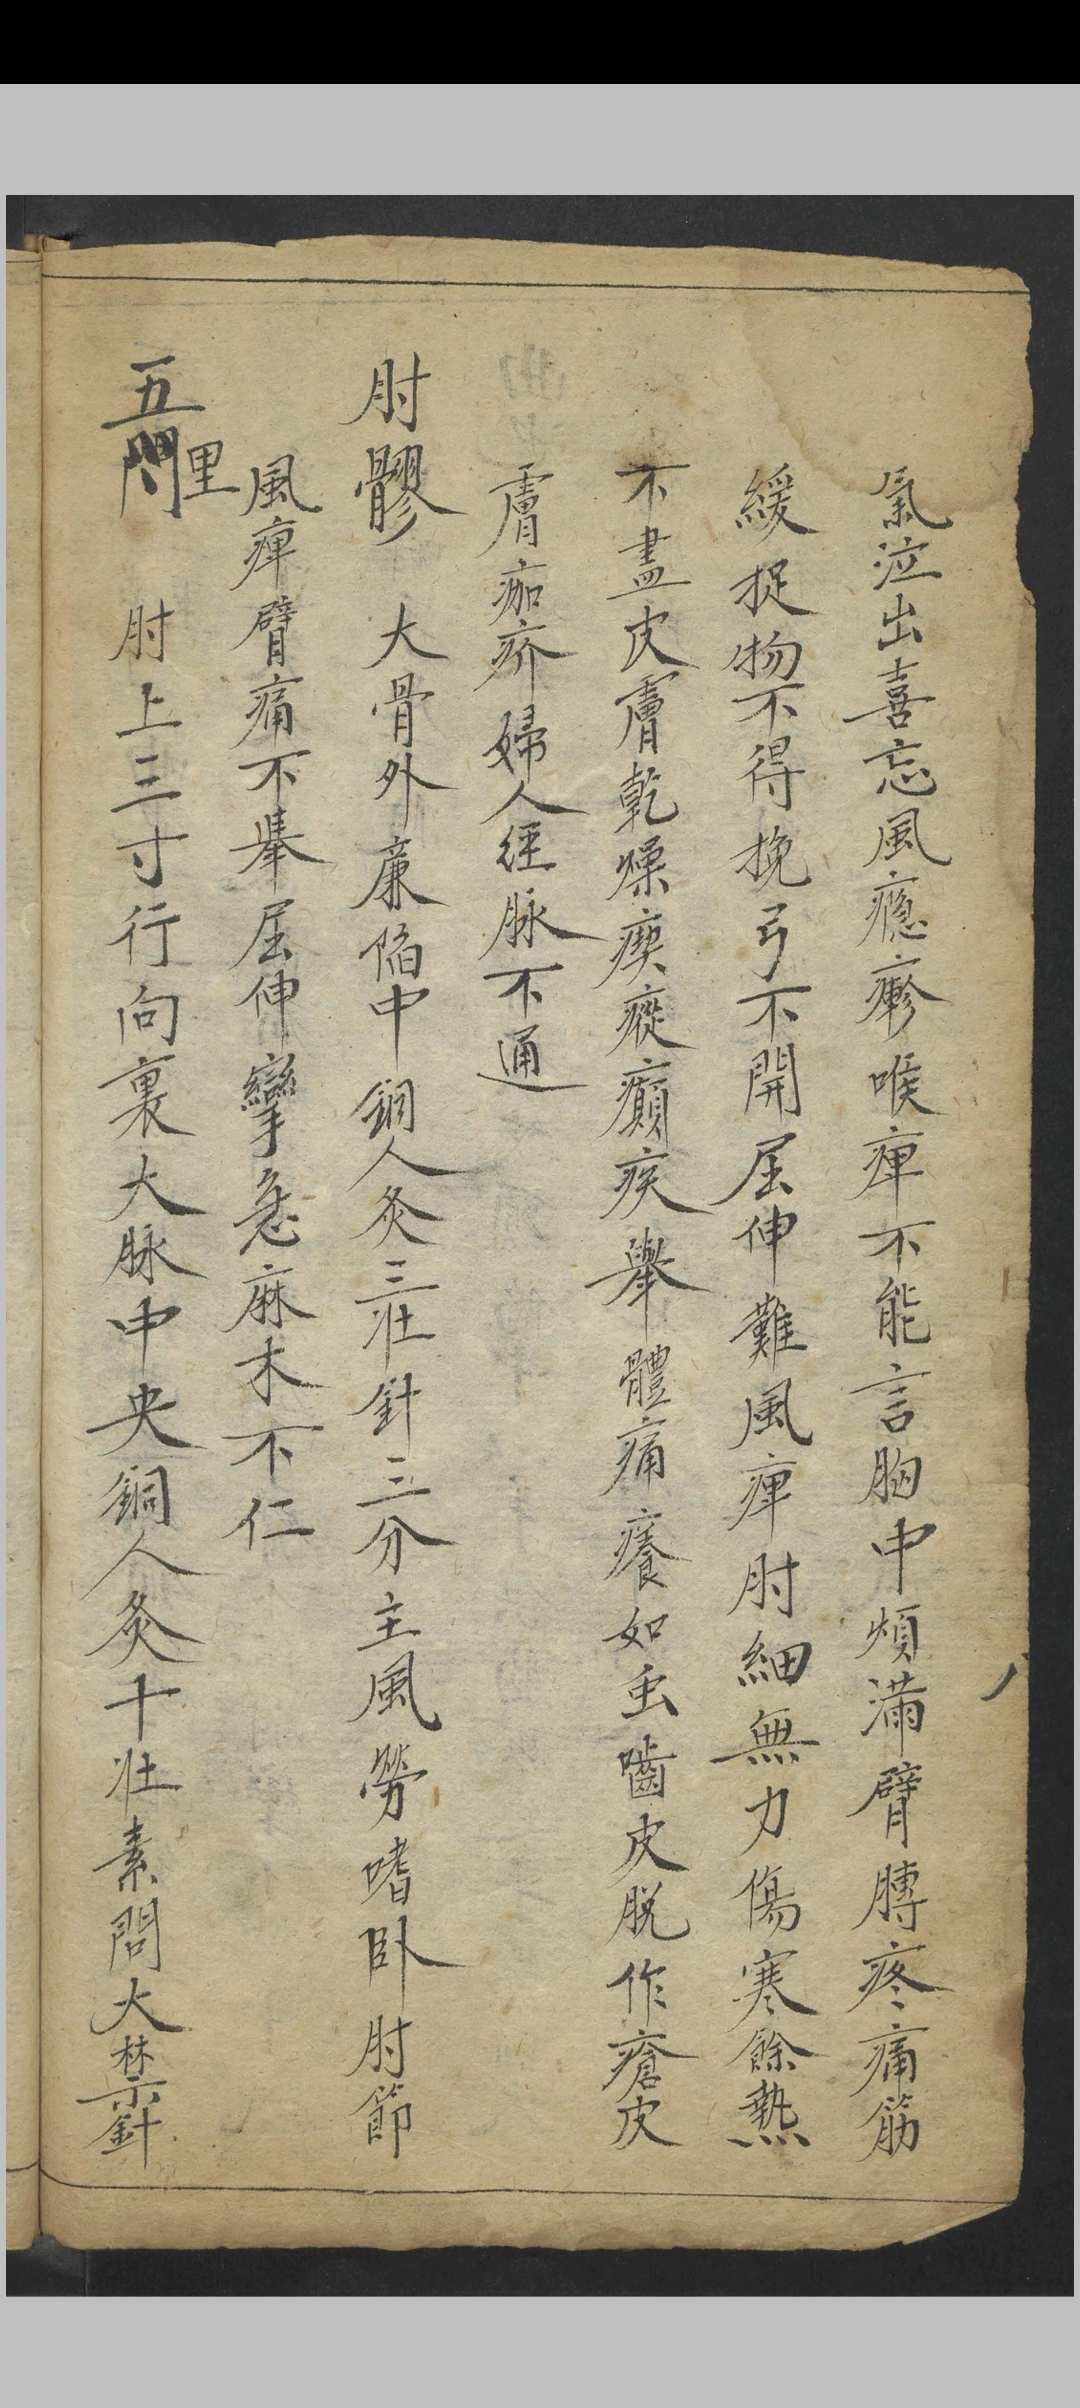 氣泣出喜忘風癮瘮喉痺不能言胸中煩滿臂膊疼痛筋
緩捉物不得挽弓不開屈伸難風痺肘細無力傷寒餘熱
不盡皮膚乾燥瘈瘲癲疾舉體痛癢如虫嚙皮脱作瘡皮
膚痂疥婦人經脉不通
肘髎 大骨外廉陷中銅人灸三壯針三分主風勞嗜卧肘節
風痺臂痛不舉屈伸攣急麻木不仁
五里 肘上三寸行向裏大脉中央銅人灸十壯素問大禁針